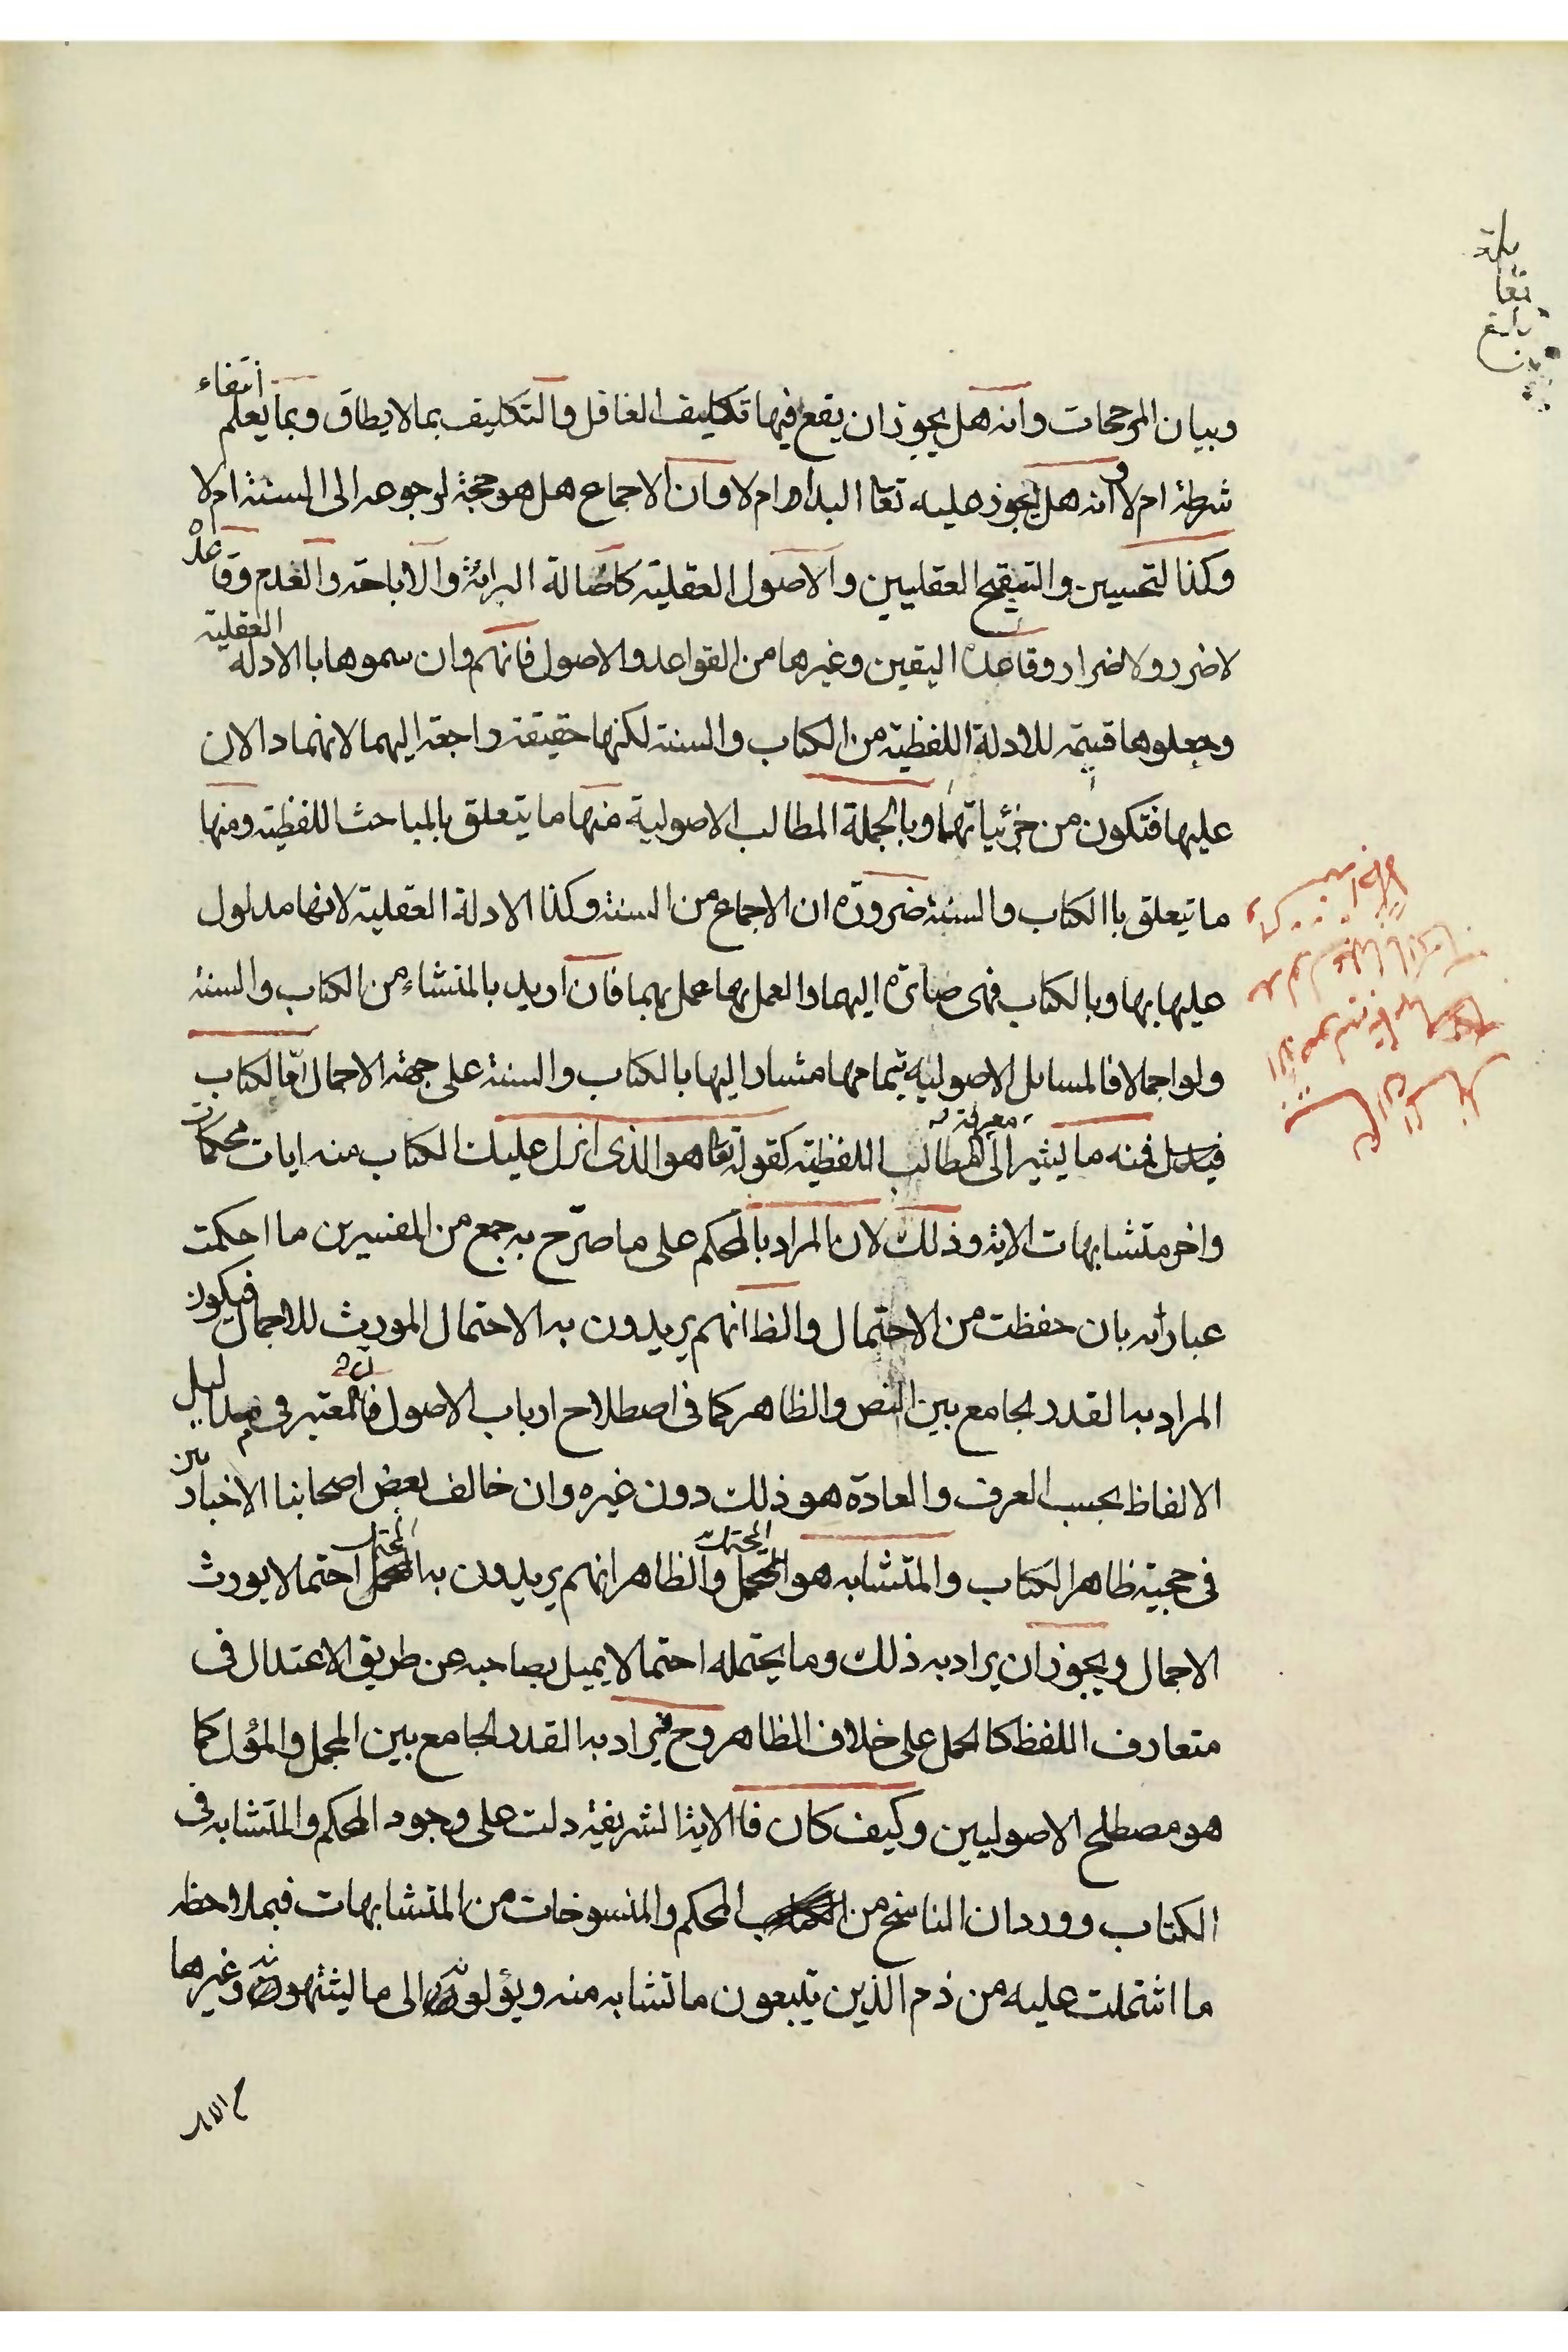 وبيان المرجحات وانه هل يجوز ان يقع فيها تكليف الغافل والتكليف بما لا يطاق وبما يعلم انتفاء
شرطه ام لا وانه هل يجوز عليه تعا البداء ام لا وان الاجماع هل هو حجة لرجوعه الى السنة ام لا
وكذا لتحسين والتقبيح العقليين والاصول العقلية كاصالة البرائة والاباحة والعدم وقاعدة
لا ضرر ولا ضرار وقاعدة اليقين وغيرها من القواعد والاصول فانهم وان سموها باالادلة العقلية
وجعلوها قسيمة للادلة اللفظية من الكتاب والسنة لكنها حقيقة راجعة اليهما لانهما دالان
عليها فتكون من جزئياتهما وبالجملة المطالب الاصولية منها ما يتعلق بالمباحث اللفظية ومنها
ما يتعلق باالكتاب والسنة ضرورة ان الاجماع من السنة وكذا الادلة العقلية لانها مدلول
عليها بها وبالكتاب فهى صائرة اليهما والعمل بها عمل بهما فان اريد بالمنشاء من الكتاب والسنة
ولو اجمالا فالمسايل الاصولية بتمامها مشارا اليها بالكتاب والسنة على جهة الاجمال امّا الكتاب
فمنه ما يشير الى معرفة المطالب اللفظية كقوله تعا هو الذى انزل عليك الكتاب منه ايات محكمات
واخر متشابهات الاية وذلك لان المراد بالمحكم على ما صرّح به جمع من المفسرين ما احكمت
عباراته بان حفظت من الاحتمال والظا انهم يريدون به الاحتمال المورث للاجمال فيكون
المراد به القدر الجامع بين النص والظاهر كما فى اصطلاح ارباب الاصول فان المعتبر فى مداليل
الالفاظ بحسب العرف والعادة هو ذلك دون غيره وان خالف بعض اصحابنا الاخباريين
فى حجية ظاهر الكتاب والمتشابه هو المحتمل والظاهر انهم يريدون به المحتمل احتمالا يورث
الاجمال ويجوز ان يراد به ذلك وما يحتمله احتمالا يميل بصاحبه عن طريق الاعتدال فى
متعارف اللفظ كالحمل على خلاف الظاهر وح فيراد به القدر الجامع بين المجمل والمؤل كما
هو مصطلح الاصوليين وكيف كان فاالاية الشريفة دلت على وجود المحكم والمتشابه فى
الكتاب وورد ان الناسخ من المحكم والمنسوخات من المتشابهات فبملاحظة
ما اشتملت عليه من ذم الذين يتبعون ما تشابه منه ويؤلونه الى ما يشتهونه وغيرها